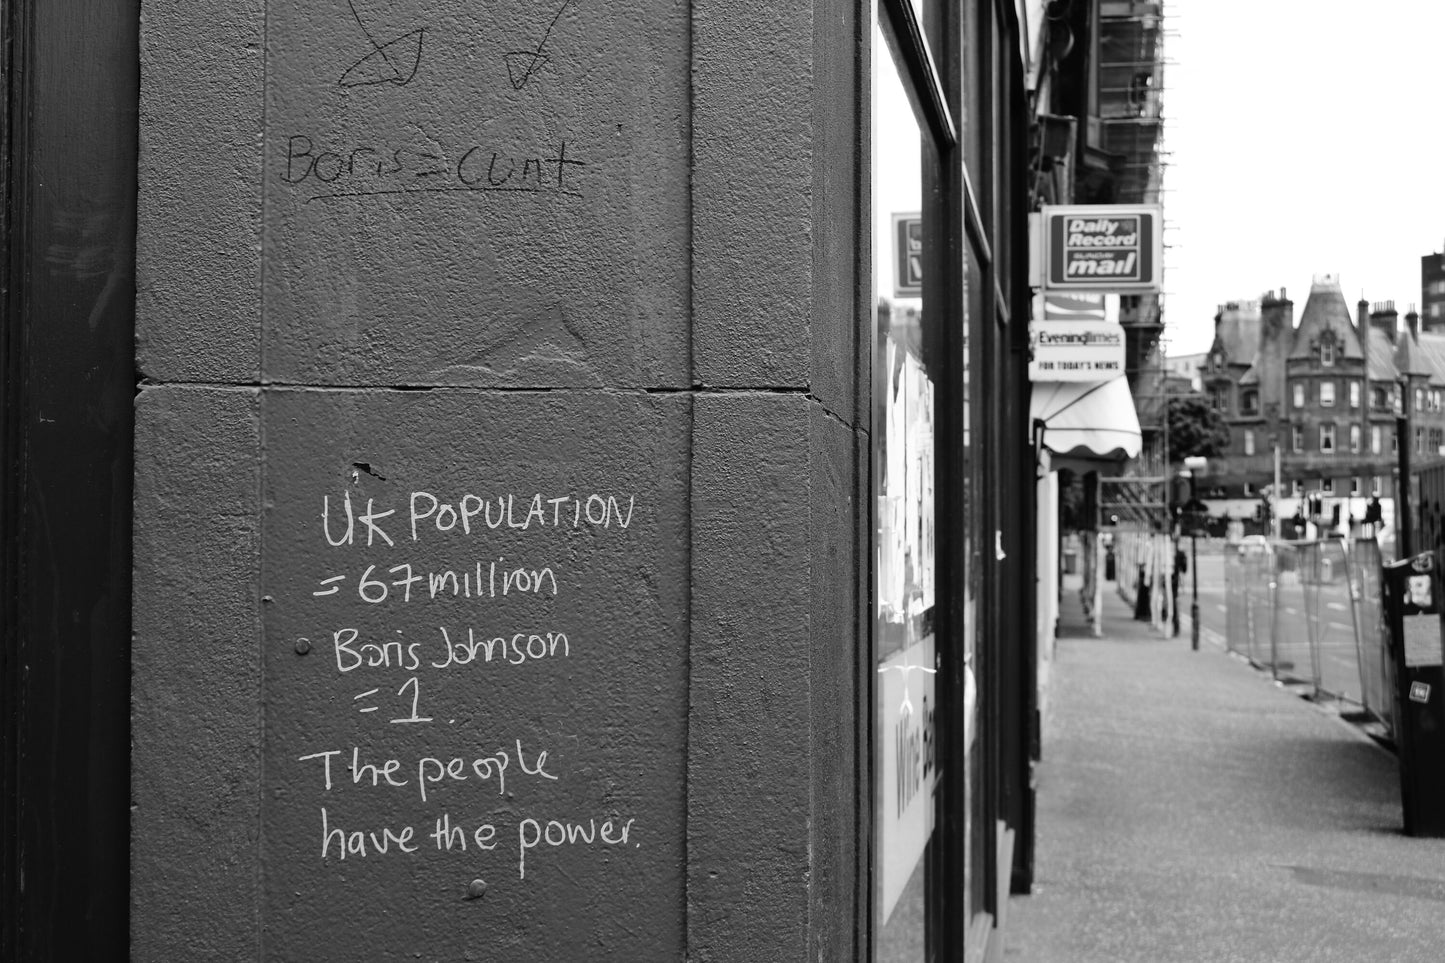 Boris = Cunt
UK POPULATION
= 67 million
Boris Johnson
= 1.
The people
have the power.
Daily
Record
SUNDAY
mail
Evening Times
FOR TODAY'S NEWS
Wine Bar